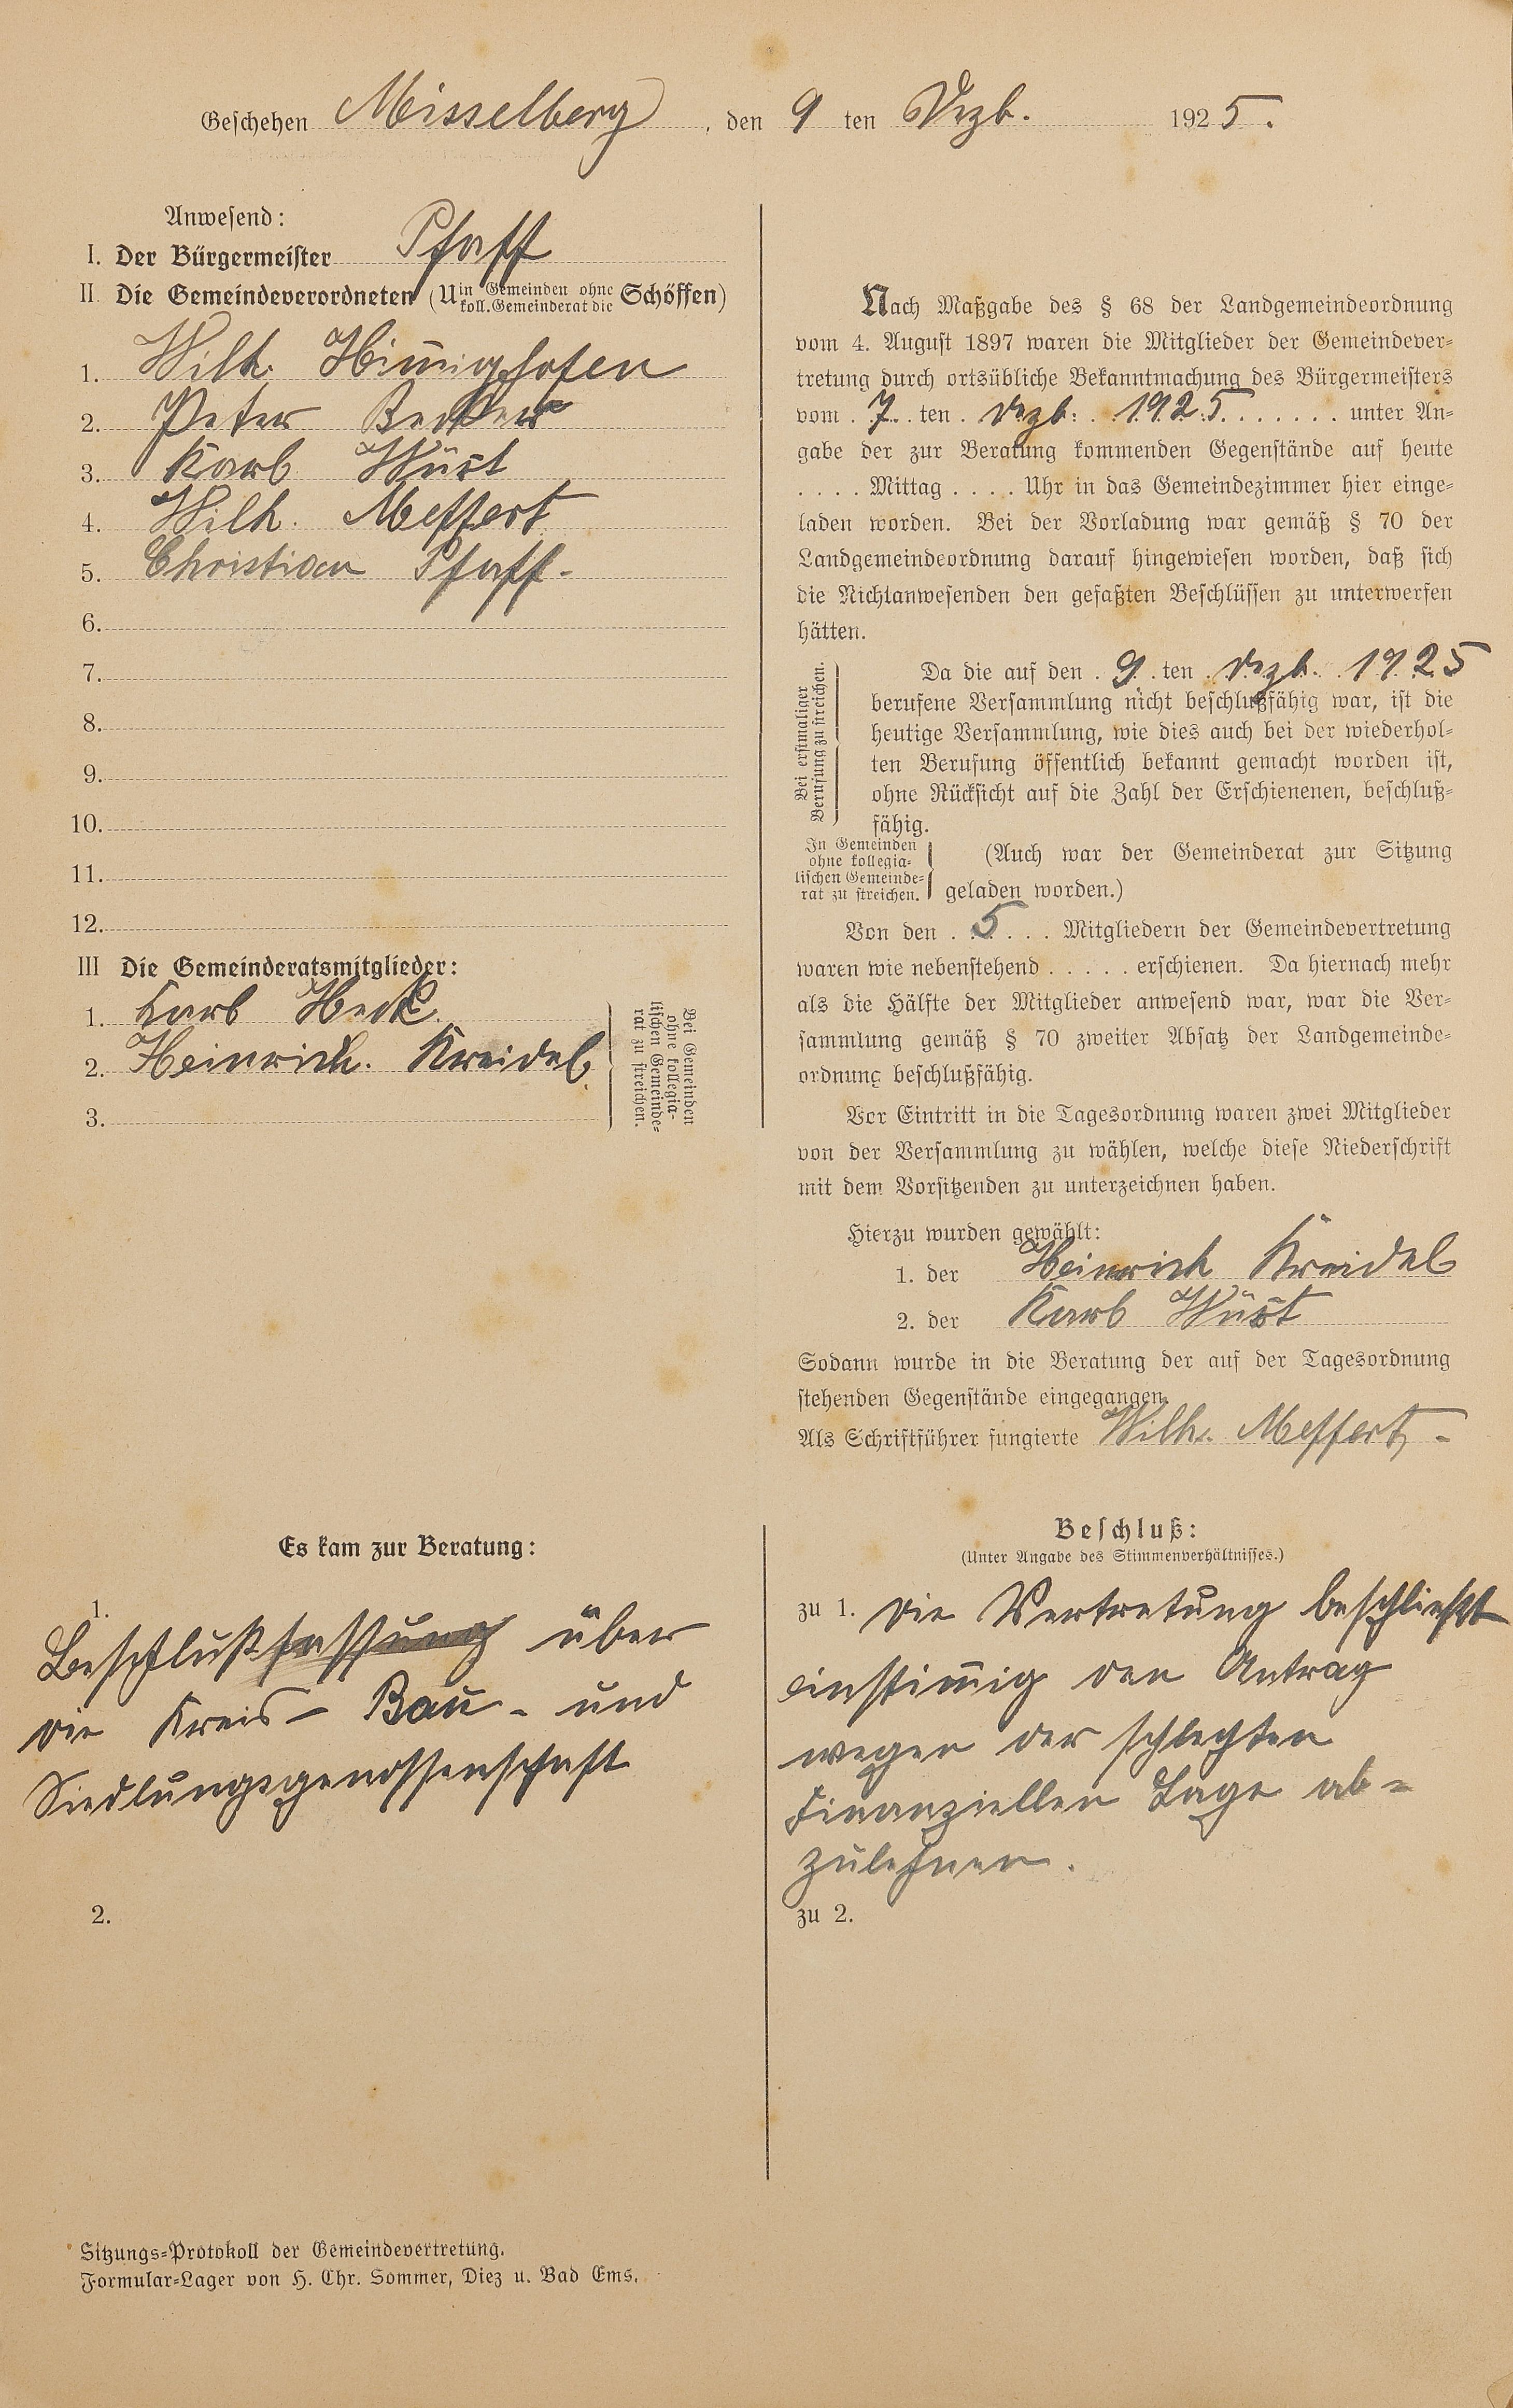 Geschehen Misselberg, den 9 ten Dezb. 1925.
Anwesend:
I. Der Bürgermeister Pfaff
II Die Gemeindeverordneten (U in Gemeinden ohne koll. Gemeinderat die Schöffen)
1. Wilh. Himmighofen
2. Peter Becker
3. Karl Wüst
4. Wilh. Meffert
5. Christian Pfaff.
6.
7.
8.
9.
10.
11.
12.
III Die Gemeinderatsmitglieder:
1. Karl Heck.
2. Heinrich. Kreidel.
3.
Bei Gemeinden
ohne kollegia-
lischen Gemeinde-
rat zu streichen.
Nach Maßgabe des § 68 der Landgemeindeordnung
vom 4. August 1897 waren die Mitglieder der Gemeindever-
tretung durch ortsübliche Bekanntmachung des Bürgermeisters
vom . 7 . ten . Dezb. . 1925 . . . . . . . unter An-
gabe der zur Beratung kommenden Gegenstände auf heute
. . . . Mittag . . . . Uhr in das Gemeindezimmer hier einge-
laden worden. Bei der Vorladung war gemäß § 70 der
Landgemeindeordnung darauf hingewiesen worden, daß sich
die Nichtanwesenden den gefaßten Beschlüssen zu unterwerfen
hätten.
Bei erstmaliger
Berufung zu streichen.
Da die auf den . 9 . ten . Dezb. . 1925
berufene Versammlung nicht beschlußfähig war, ist die
heutige Versammlung, wie dies auch bei der wiederhol-
ten Berufung öffentlich bekannt gemacht worden ist,
ohne Rücksicht auf die Zahl der Erschienenen, beschluß-
fähig.
In Gemeinden
ohne kollegia-
lischen Gemeinde-
rat zu streichen.
(Auch war der Gemeinderat zur Sitzung
geladen worden.)
Von den . . 5 . . . Mitgliedern der Gemeindevertretung
waren wie nebenstehend . . . . . erschienen. Da hiernach mehr
als die Hälfte der Mitglieder anwesend war, war die Ver-
sammlung gemäß § 70 zweiter Absatz der Landgemeinde-
ordnung beschlußfähig.
Vor Eintritt in die Tagesordnung waren zwei Mitglieder
von der Versammlung zu wählen, welche diese Niederschrift
mit dem Vorsitzenden zu unterzeichnen haben.
Hierzu wurden gewählt:
1. der Heinrich Kreidel
2. der Karl Wüst
Sodann wurde in die Beratung der auf der Tagesordnung
stehenden Gegenstände eingegangen.
Als Schriftführer fungierte Wilh. Meffert.
Es kam zur Beratung:
1.
Beschlußfassung über
die Kreis- Bau- und
Siedlungsgenossenschaft
2.
Beschluß:
(Unter Angabe des Stimmenverhältnisses.)
zu 1. die Vertretung beschließt
einstimmig den Antrag
wegen der schlechten
Finanziellen Lage ab-
zulehnen.
zu 2.
Sitzungs-Protokoll der Gemeindevertretung.
Formular-Lager von H. Chr. Sommer, Diez u. Bad Ems.